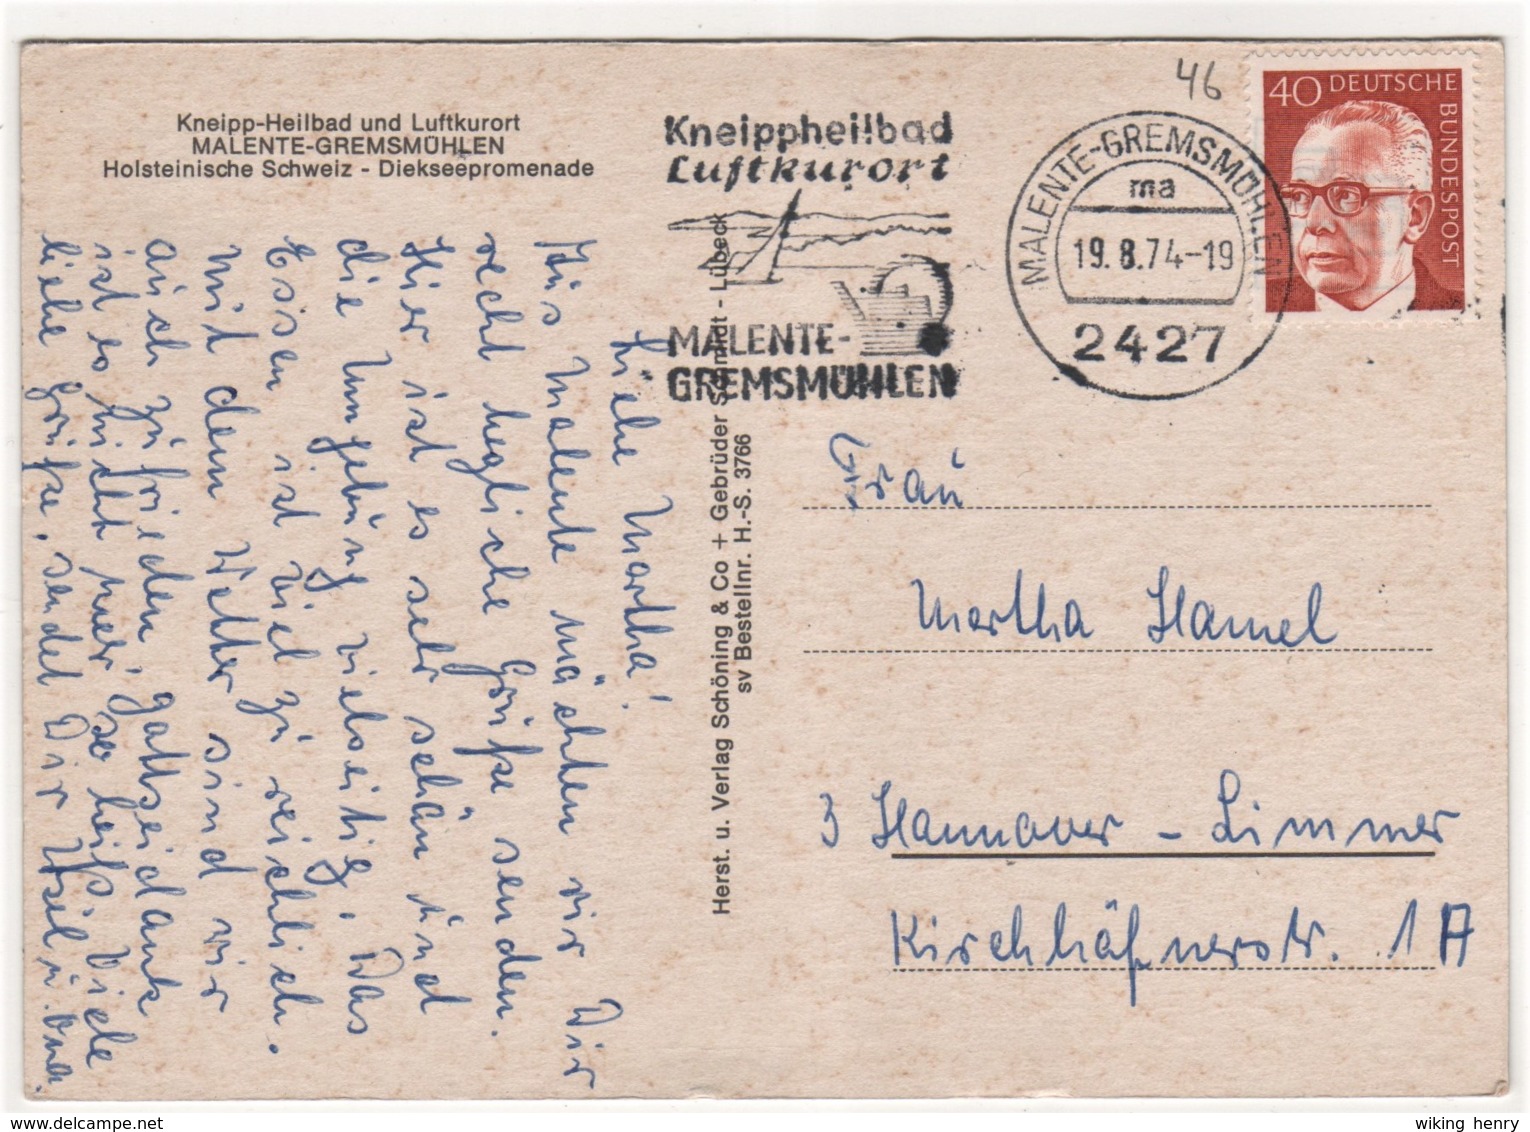 Kneipp-Heilbad und Luftkurort
MALENTE-GREMSMÜHLEN
Holsteinische Schweiz - Diekseepromenade
Kneippheilbad
Luftkurort
MALENTE-
GREMSMÜHLEN
MALENTE-GREMSMÜHLEN
ma
19.8.74-19
2427
46
40 DEUTSCHE
BUNDESPOST
Liebe Martha!
Aus Malente möchten wir Dir
recht herzliche Grüße senden.
Hier ist es sehr schön und
die Umgebung vielseitig. Das
Essen ist viel zu reichlich.
Mit dem Wetter sind wir
auch zufrieden, gottseidank
ist es nicht mehr so heiß. Viele
liebe Grüße, sendet Dir u.
Herst. u. Verlag Schöning & Co + Gebrüder Schmidt - Lübeck
sv Bestellnr. H.-S. 3766
Frau
Martha Hamel
3 Hannover - Limmer
Kirchhöfnerstr. 1A
wiking henry